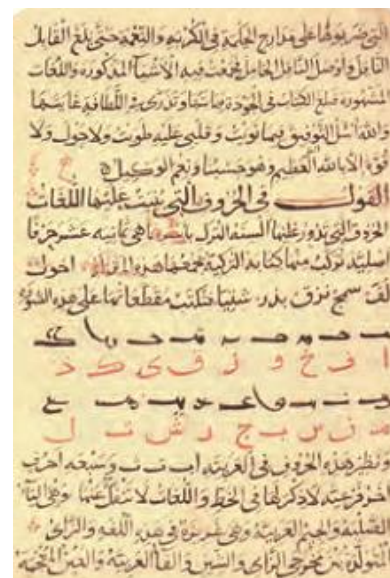 التي ضربوها على مدارج الحكمة في الكربة والنعمة حتى بلغ القابل
فجمعت فيه الأشيا المذكورة واللغات
المشهورة فبلغ الكتاب في الجودة اللطافة غايتها
والله أسل التوفيق فيما نويت وقلبي عليه طويت ولا حول ولا
قوة إلا بالله العظيم وهو حسبنا ونعم الوكيل
القول في الحروف التي بنيت عليها اللغات
الحروف التي تدور عليها ألسنة الترك هي ثمانية عشر حرفا
أصلية تركب منها كتابة التركية تجمعها هذه اخوك
لف سمج نزق بذر شتيا فتكتب مقطعاتها على هذه الصورة
ا ف خ و ز ق ى ك ذ
م ن س ب ج ر ش ت ل
ونظير هذه الحروف في العربية ا ب ت ث وسبعة أحرف
أخر فرعية لا ذكر لها في الخط واللغات لا تنفك عنها وهي الباء
الصلبة والجيم العربية وهي في هذه اللغة والزاى
المتولدة بين مخرجي الزاى والشين والفا العربية والغين